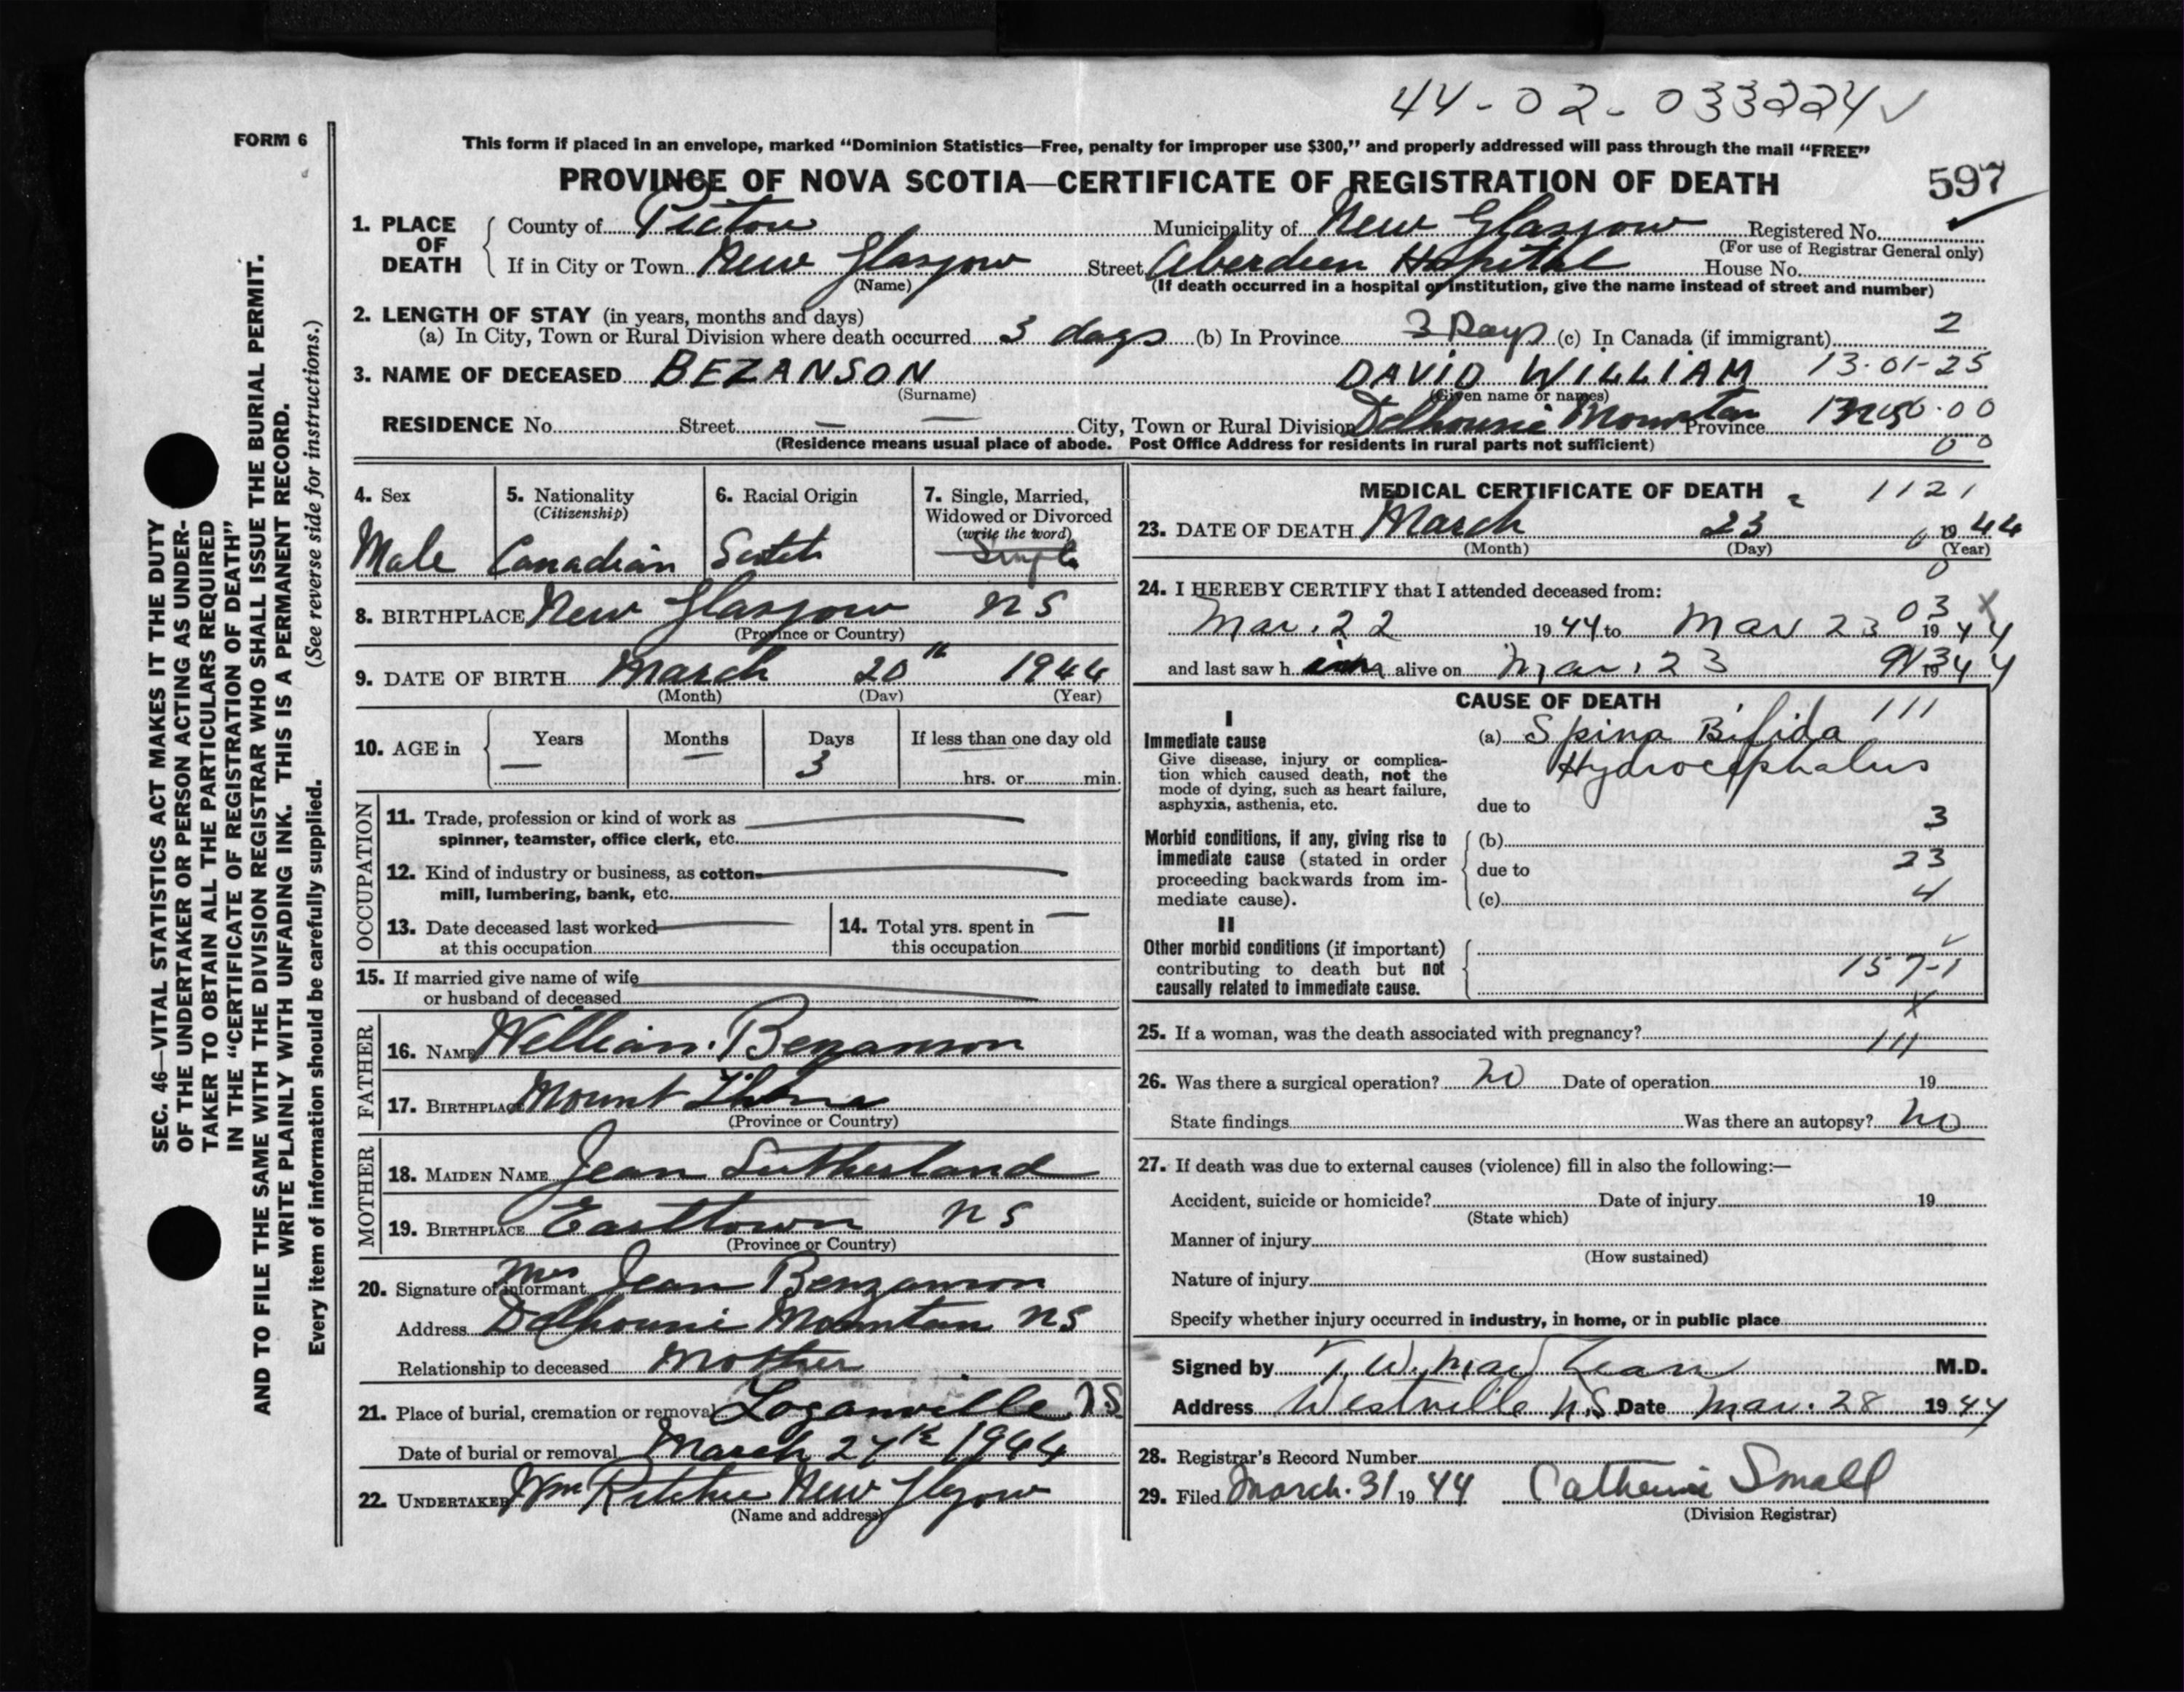 44-02-033224 ✓
FORM 6
This form if placed in an envelope, marked "Dominion Statistics—Free, penalty for improper use $300," and properly addressed will pass through the mail "FREE"
PROVINCE OF NOVA SCOTIA—CERTIFICATE OF REGISTRATION OF DEATH 597
1. PLACE OF DEATH County of Pictou Municipality of New Glasgow Registered No.
(For use of Registrar General only)
If in City or Town New Glasgow Street Aberdeen Hospital House No.
(Name) (If death occurred in a hospital or institution, give the name instead of street and number)
2. LENGTH OF STAY (in years, months and days)
(a) In City, Town or Rural Division where death occurred 3 days (b) In Province 3 Days (c) In Canada (if immigrant) 2
3. NAME OF DECEASED BEZANSON DAVID WILLIAM 13-01-25
(Surname) (Given name or names)
RESIDENCE No. Street — — City, Town or Rural Division Dalhousie Mountain Province
(Residence means usual place of abode. Post Office Address for residents in rural parts not sufficient) 00
4. Sex 5. Nationality (Citizenship) 6. Racial Origin 7. Single, Married, Widowed or Divorced (write the word)
Male Canadian Scotch Single
8. BIRTHPLACE New Glasgow NS
(Province or Country)
9. DATE OF BIRTH March 20th 1944
(Month) (Day) (Year)
10. AGE in Years Months Days If less than one day old
— — 3 hrs. or min.
OCCUPATION
11. Trade, profession or kind of work as
spinner, teamster, office clerk, etc.
12. Kind of industry or business, as cotton-
mill, lumbering, bank, etc.
13. Date deceased last worked
at this occupation
14. Total yrs. spent in
this occupation
15. If married give name of wife
or husband of deceased
FATHER
16. NAME William Benzanson
17. BIRTHPLACE Mount Thom
(Province or Country)
MOTHER
18. MAIDEN NAME Jean Sutherland
19. BIRTHPLACE Earltown NS
(Province or Country)
20. Signature of informant Mrs Jean Benzanson
Address Dalhousie Mountain NS
Relationship to deceased Mother
21. Place of burial, cremation or removal Loganville NS
Date of burial or removal March 24th 1944
22. UNDERTAKER Wm Ritchie New Glasgow
(Name and address)
MEDICAL CERTIFICATE OF DEATH 1121
23. DATE OF DEATH March 23 1944
(Month) (Day) (Year)
24. I HEREBY CERTIFY that I attended deceased from:
03 X
Mar. 22 1944 to Mar 23 1944
and last saw h im alive on Mar. 23 1944
CAUSE OF DEATH
I 111
Immediate cause (a) Spina Bifida
Give disease, injury or complica-
tion which caused death, not the
mode of dying, such as heart failure,
asphyxia, asthenia, etc.
Hydrocephalus
due to
3
Morbid conditions, if any, giving rise to
immediate cause (stated in order
proceeding backwards from im-
mediate cause).
(b)
due to 23
(c) 4
II
Other morbid conditions (if important)
contributing to death but not
causally related to immediate cause.
157-1
X
25. If a woman, was the death associated with pregnancy?
111
26. Was there a surgical operation? no Date of operation 19
State findings Was there an autopsy? no
27. If death was due to external causes (violence) fill in also the following:—
Accident, suicide or homicide? Date of injury 19
(State which)
Manner of injury
(How sustained)
Nature of injury
Specify whether injury occurred in industry, in home, or in public place
Signed by T. W. MacLean M.D.
Address Westville N.S. Date Mar. 28 1944
28. Registrar's Record Number
29. Filed March. 31 1944 Catherine Small
(Division Registrar)
SEC. 46—VITAL STATISTICS ACT MAKES IT THE DUTY
OF THE UNDERTAKER OR PERSON ACTING AS UNDER-
TAKER TO OBTAIN ALL THE PARTICULARS REQUIRED
IN THE "CERTIFICATE OF REGISTRATION OF DEATH"
AND TO FILE THE SAME WITH THE DIVISION REGISTRAR WHO SHALL ISSUE THE BURIAL PERMIT.
WRITE PLAINLY WITH UNFADING INK. THIS IS A PERMANENT RECORD.
Every item of information should be carefully supplied. (See reverse side for instructions.)